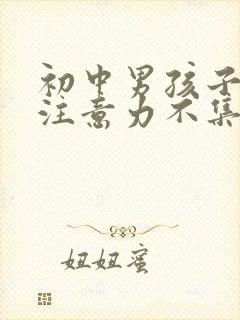 初中男孩子
注意力不集
妞妞蜜